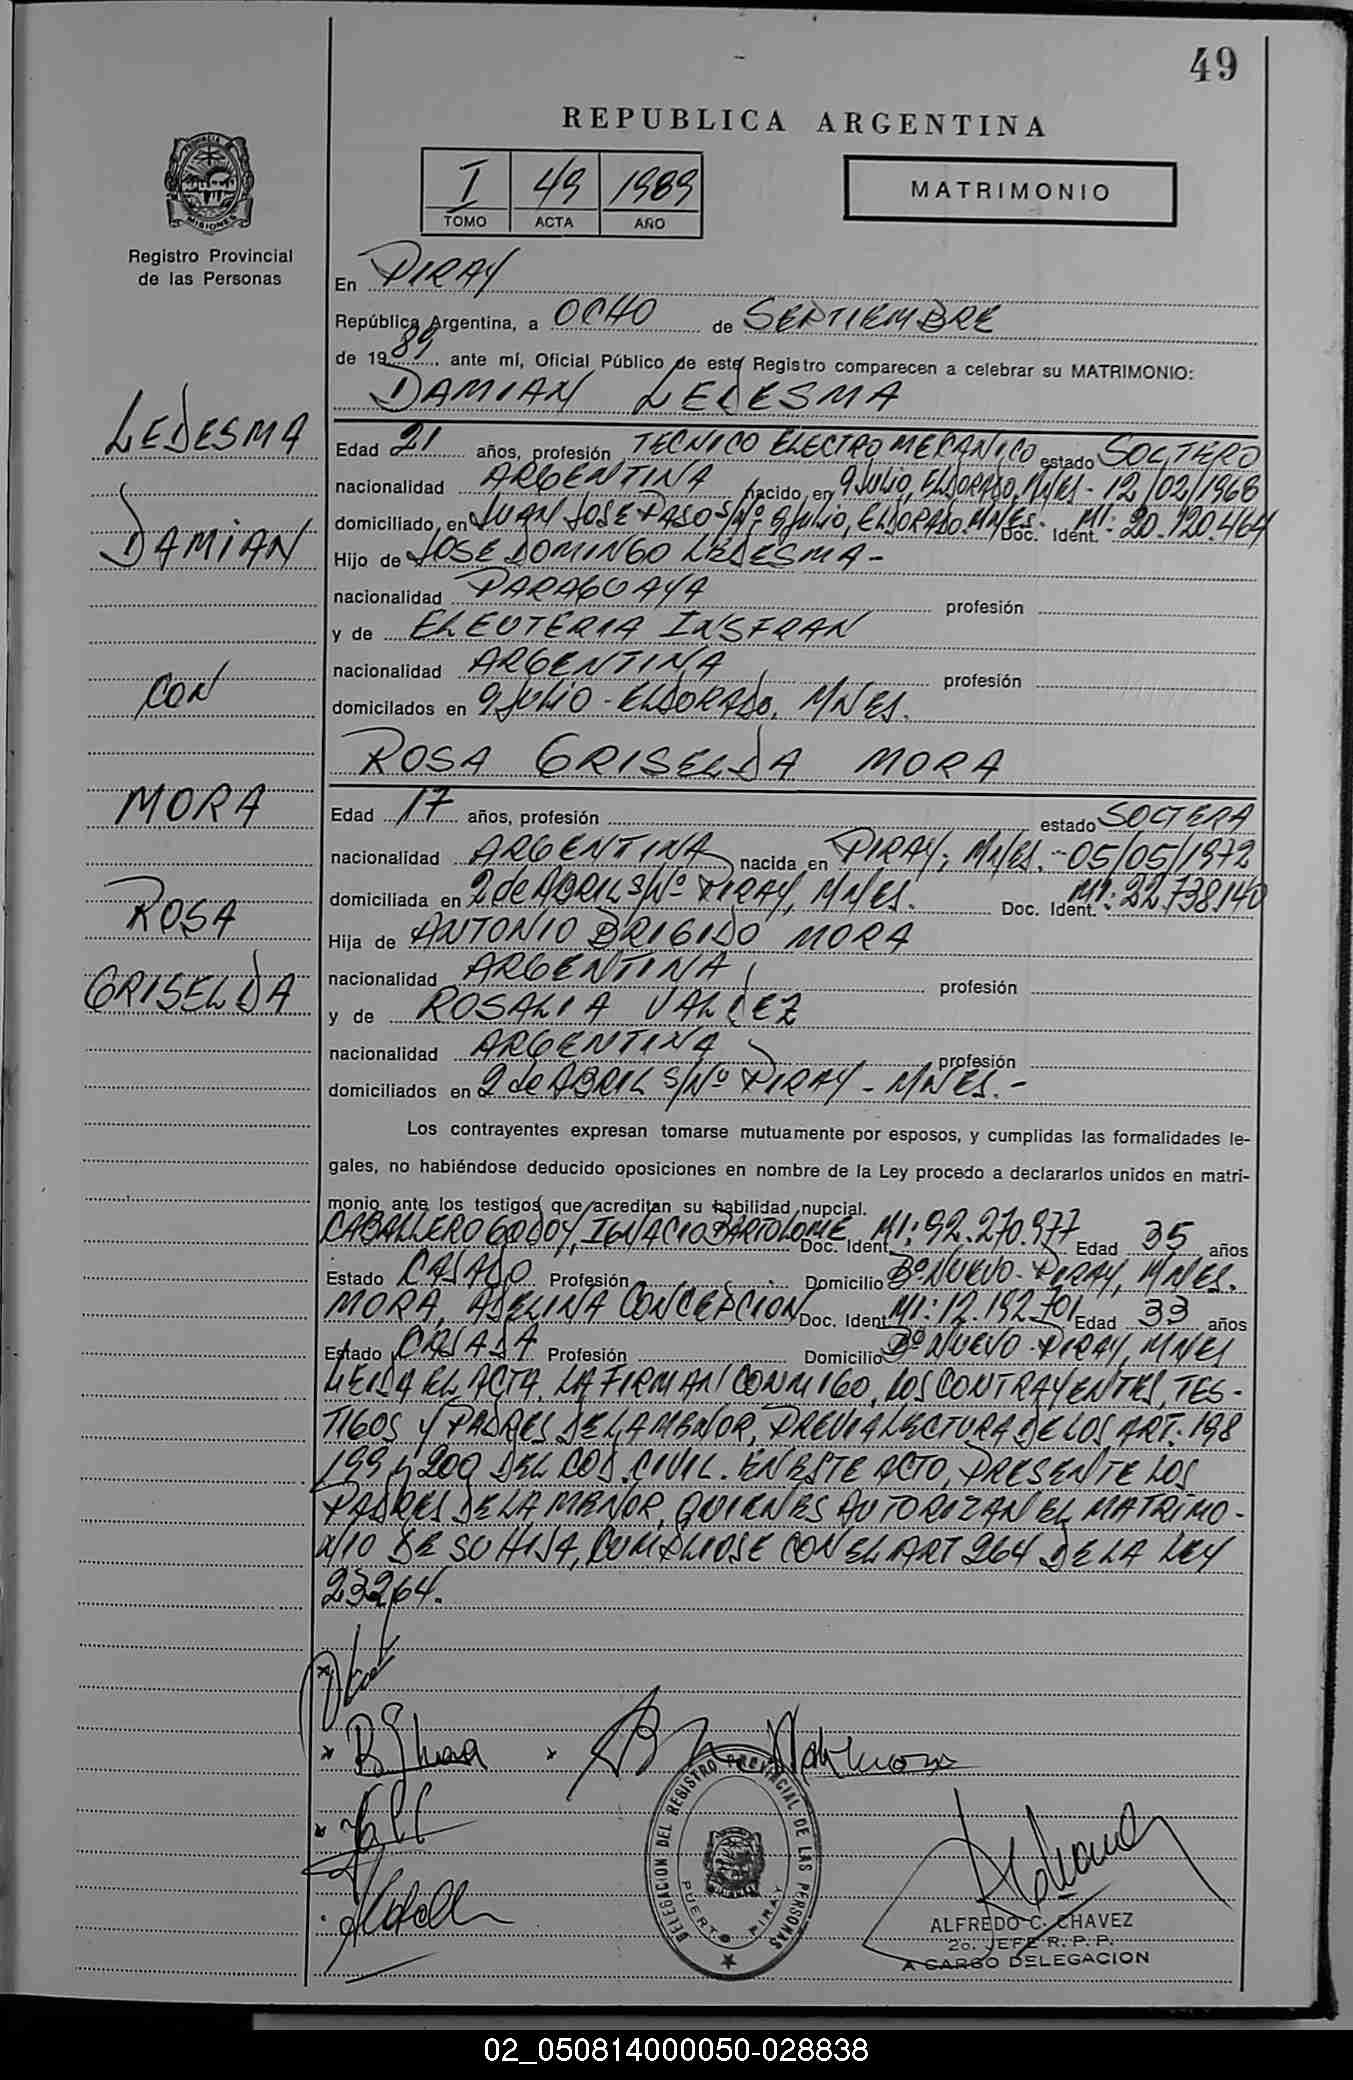 49
REPUBLICA ARGENTINA
I 49 1989
TOMO ACTA AÑO
MATRIMONIO
PROVINCIA DE MISIONES
Registro Provincial
de las Personas
LEDESMA
DAMIAN
CON
MORA
ROSA
GRISELDA
En PIRAY
República Argentina, a OCHO de SEPTIEMBRE
de 1989 ante mí, Oficial Público de este Registro comparecen a celebrar su MATRIMONIO:
DAMIAN LEDESMA
Edad 21 años, profesión TECNICO ELECTRO MECANICO estado SOLTERO
nacionalidad ARGENTINA nacido en 9 JULIO, ELDORADO, MNES - 12/02/1968
domiciliado en JUAN JOSE PASO S/Nº 9 JULIO, ELDORADO. MNES. Doc. Ident. MI: 20.120.464
Hijo de JOSE DOMINGO LEDESMA -
nacionalidad PARAGUAYA profesión
y de ELEUTERIA INSFRAN
nacionalidad ARGENTINA profesión
domicilados en 9 JULIO - ELDORADO, MNES.
ROSA GRISELDA MORA
Edad 17 años, profesión estado SOLTERA
nacionalidad ARGENTINA nacida en PIRAY, MNES. - 05/05/1972
domiciliada en 2 de ABRIL S/Nº PIRAY, MNES. Doc. Ident. MI: 22.738.140
Hija de ANTONIO BRIGIDO MORA
nacionalidad ARGENTINA profesión
y de ROSALIA VALDEZ
nacionalidad ARGENTINA profesión
domiciliados en 2 de ABRIL S/Nº PIRAY - MNES. -
Los contrayentes expresan tomarse mutuamente por esposos, y cumplidas las formalidades le-
gales, no habiéndose deducido oposiciones en nombre de la Ley procedo a declararlos unidos en matri-
monio ante los testigos que acreditan su habilidad nupcial.
CABALLERO GODOY, IGNACIO BARTOLOME Doc. Ident. MI: 92.270.977 Edad 35 años
Estado CASADO Profesión Domicilio Bº NUEVO - PIRAY, MNES.
MORA, ADELINA CONCEPCION Doc. Ident MI: 12.192.701 Edad 33 años
Estado CASADA Profesión Domicilio Bº NUEVO - PIRAY, MNES
LEIDA EL ACTA, LA FIRMAN CONMIGO, LOS CONTRAYENTES, TES-
TIGOS Y PADRES DE LA MENOR, PREVIA LECTURA DE LOS ART. 198
199 y 200 DEL COD. CIVIL. EN ESTE ACTO, PRESENTE LOS
PADRES DE LA MENOR, QUIENES AUTORIZAN EL MATRIMO-
NIO DE SU HIJA, CUMPLIOSE CON EL ART 264 DE LA LEY
23264.
DELEGACION DEL REGISTRO PROVINCIAL DE LAS PERSONAS
PUERTO PIRAY
ALFREDO C. CHAVEZ
2o. JEFE R. P. P.
A CARGO DELEGACION
02_050814000050-028838